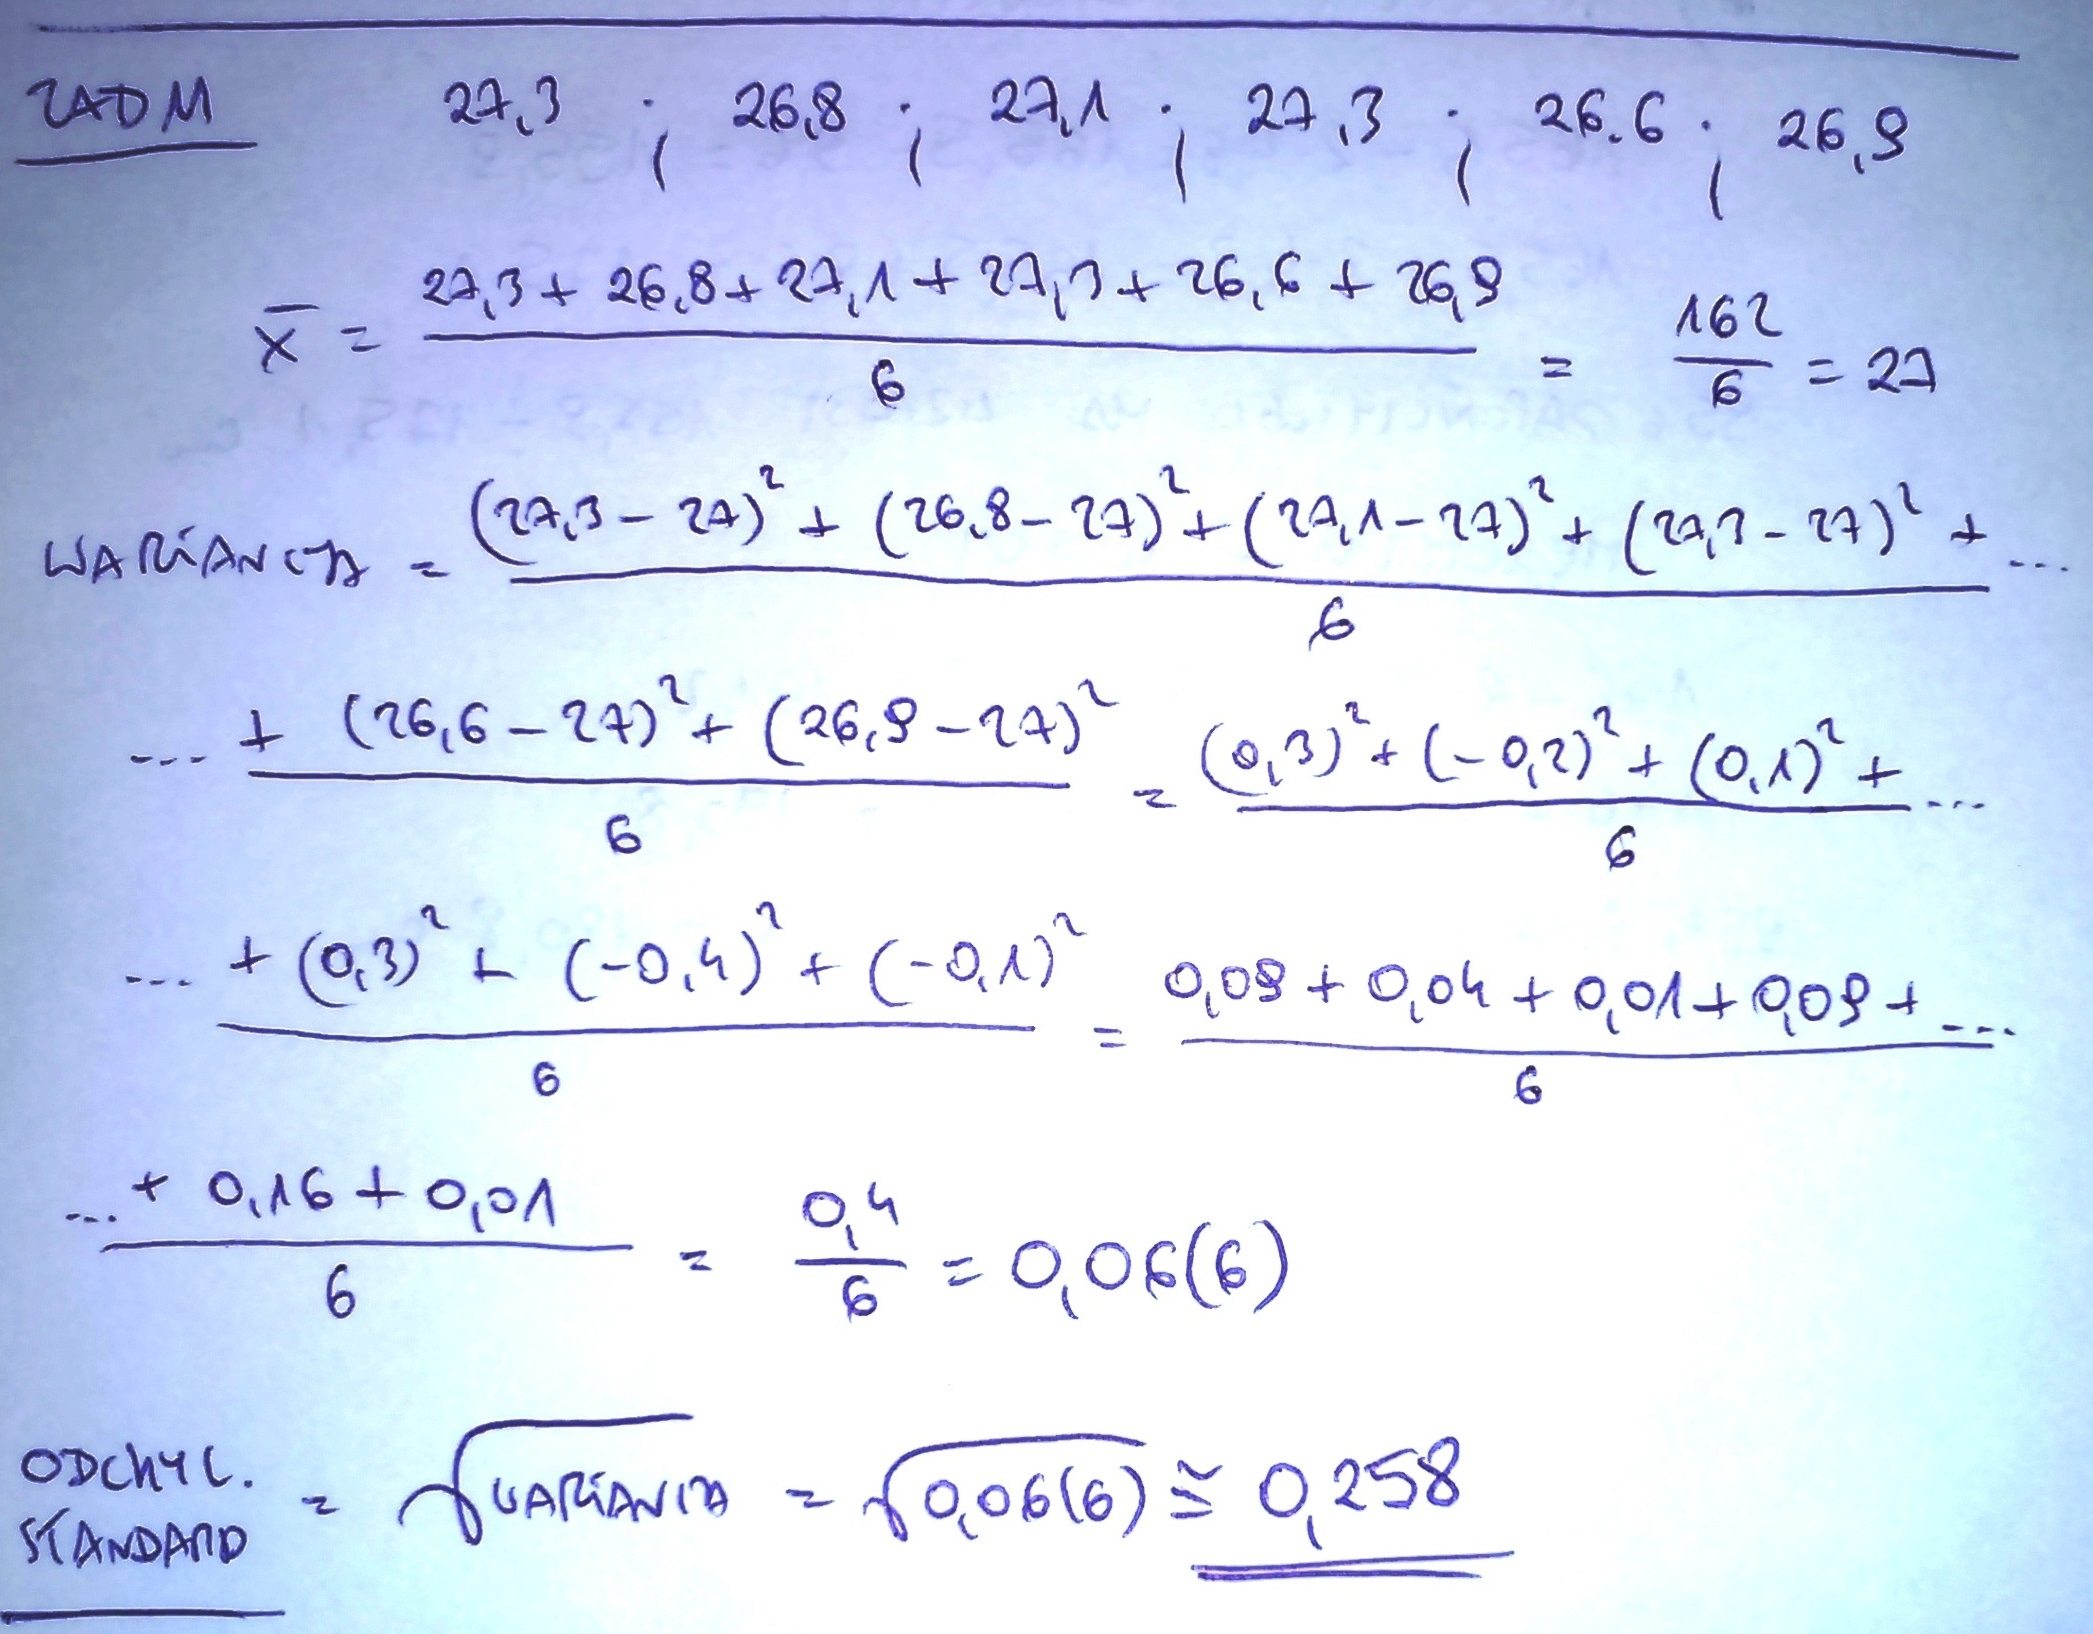 ZAD M 27,3 ; 26,8 ; 27,1 ; 27,3 ; 26.6 ; 26,9
x̄ = (27,3 + 26,8 + 27,1 + 27,3 + 26,6 + 26,9) / 6 = 162/6 = 27
WARIANCJA = ((27,3 – 27)² + (26,8 – 27)² + (27,1 – 27)² + (27,3 – 27)² + ...) / 6
... (+ (26,6 – 27)² + (26,9 – 27)²) / 6 = ((0,3)² + (–0,2)² + (0,1)² + ...) / 6
... (+ (0,3)² + (–0,4)² + (–0,1)²) / 6 = (0,09 + 0,04 + 0,01 + 0,09 + ...) / 6
... (+ 0,16 + 0,01) / 6 = 0,4/6 = 0,06(6)
ODCHYL. STANDARD = √WARIANCJA = √0,06(6) ≅ 0,258